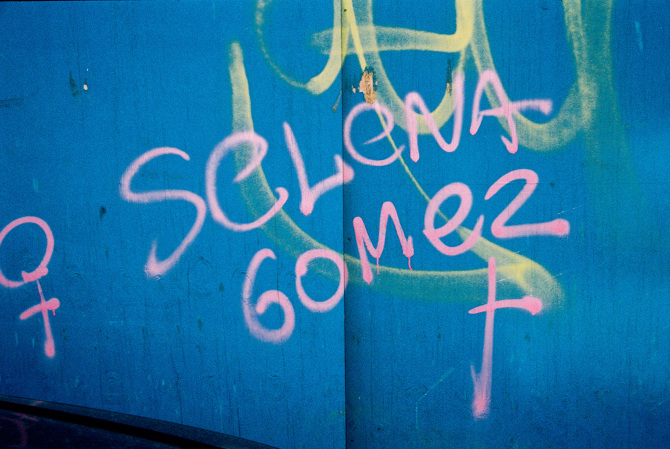 SeLeNA
GOMeZ